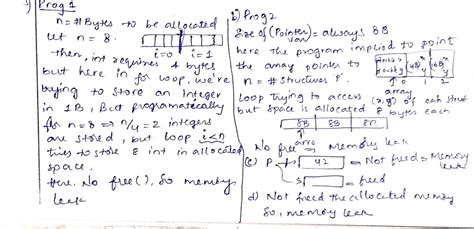 a) Prog 1
n = # Bytes to be allocated
let n = 8.
i=0 i=1
then, int requires 4 bytes
but here in for loop, we're
trying to store an Integer
in 1B, But programatically
for n=8 ⇒ n/4 = 2 integers
are stored, but loop i<n
tries to store 8 int in allocated
space.
Here, No free(), So memory
leak
b) Prog 2
Size of (Pointer) = always 8B
var
here the program implied to point
the array points to
n = # structures P.
0 1 2
array
loop trying to access (x, y) of each struct
but space is allocated 8 bytes each
8B 8B 8B
arr
No free → Memory leak
(c) P → 42 = Not freed = Memory
leak
s → = freed
d) Not freed the allocated memory
So, memory leak